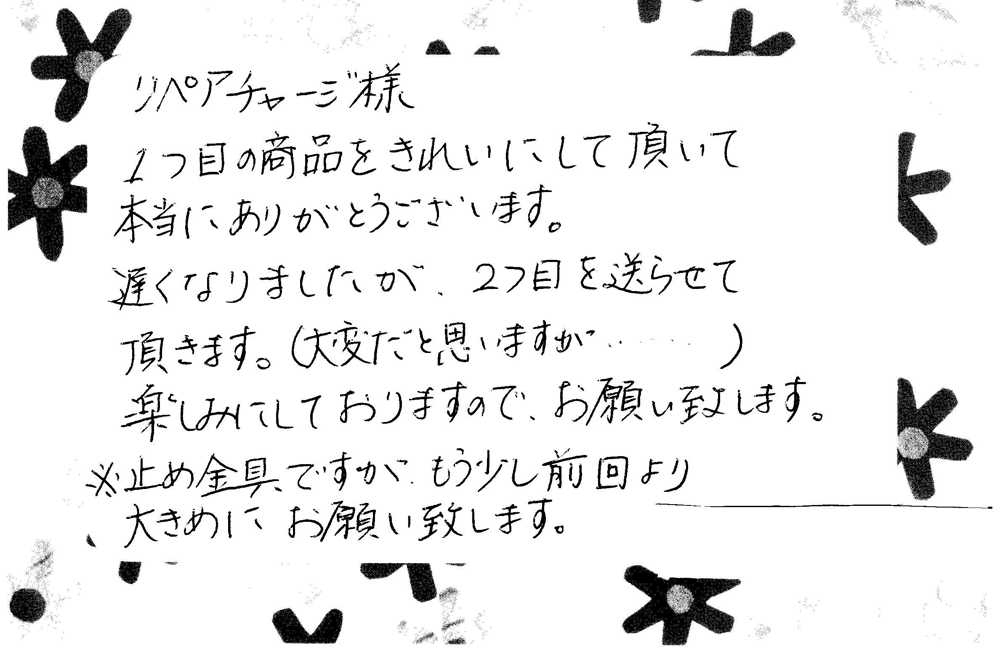 リペアチャージ様
1つ目の商品をきれいにして頂いて
本当にありがとうございます。
遅くなりましたが、2つ目を送らせて
頂きます。(大変だと思いますが……)
楽しみにしておりますので、お願い致します。
※止め金具ですが、もう少し前回より
大きめに お願い致します。